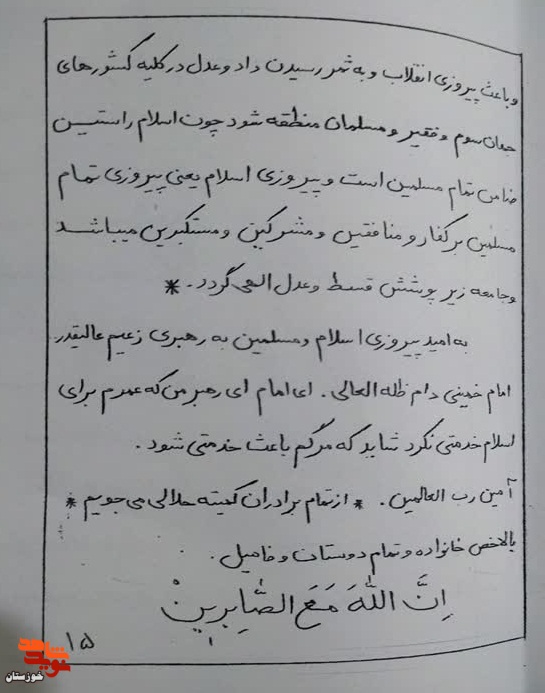 و باعث پیروزی انقلاب و به ثمر رسیدن داد و عدل در کلیه کشورهای
جهان سوم و فقیر و مسلمان منطقه شود چون اسلام راستین
ضامن تمام مسلمین است و پیروزی اسلام یعنی پیروزی تمام
مسلمین بر کفار و منافقین و مشرکین و مستکبرین میباشد
و جامعه زیر پوشش قسط و عدل الهی گردد. *
به امید پیروزی اسلام و مسلمین به رهبری زعیم عالیقدر
امام خمینی دام ظله العالی. ای امام ای رهبر من که عمرم برای
اسلام خدمتی نکرد شاید که مرگم باعث خدمتی شود.
آمین رب العالمین. * از تمام برادران کمیته حلالی می جویم *
بالاخص خانواده و تمام دوستان و فامیل.
اِنَّ اللّٰهَ مَعَ الصّابِرینْ
۱۵
نوید شاهد
خوزستان